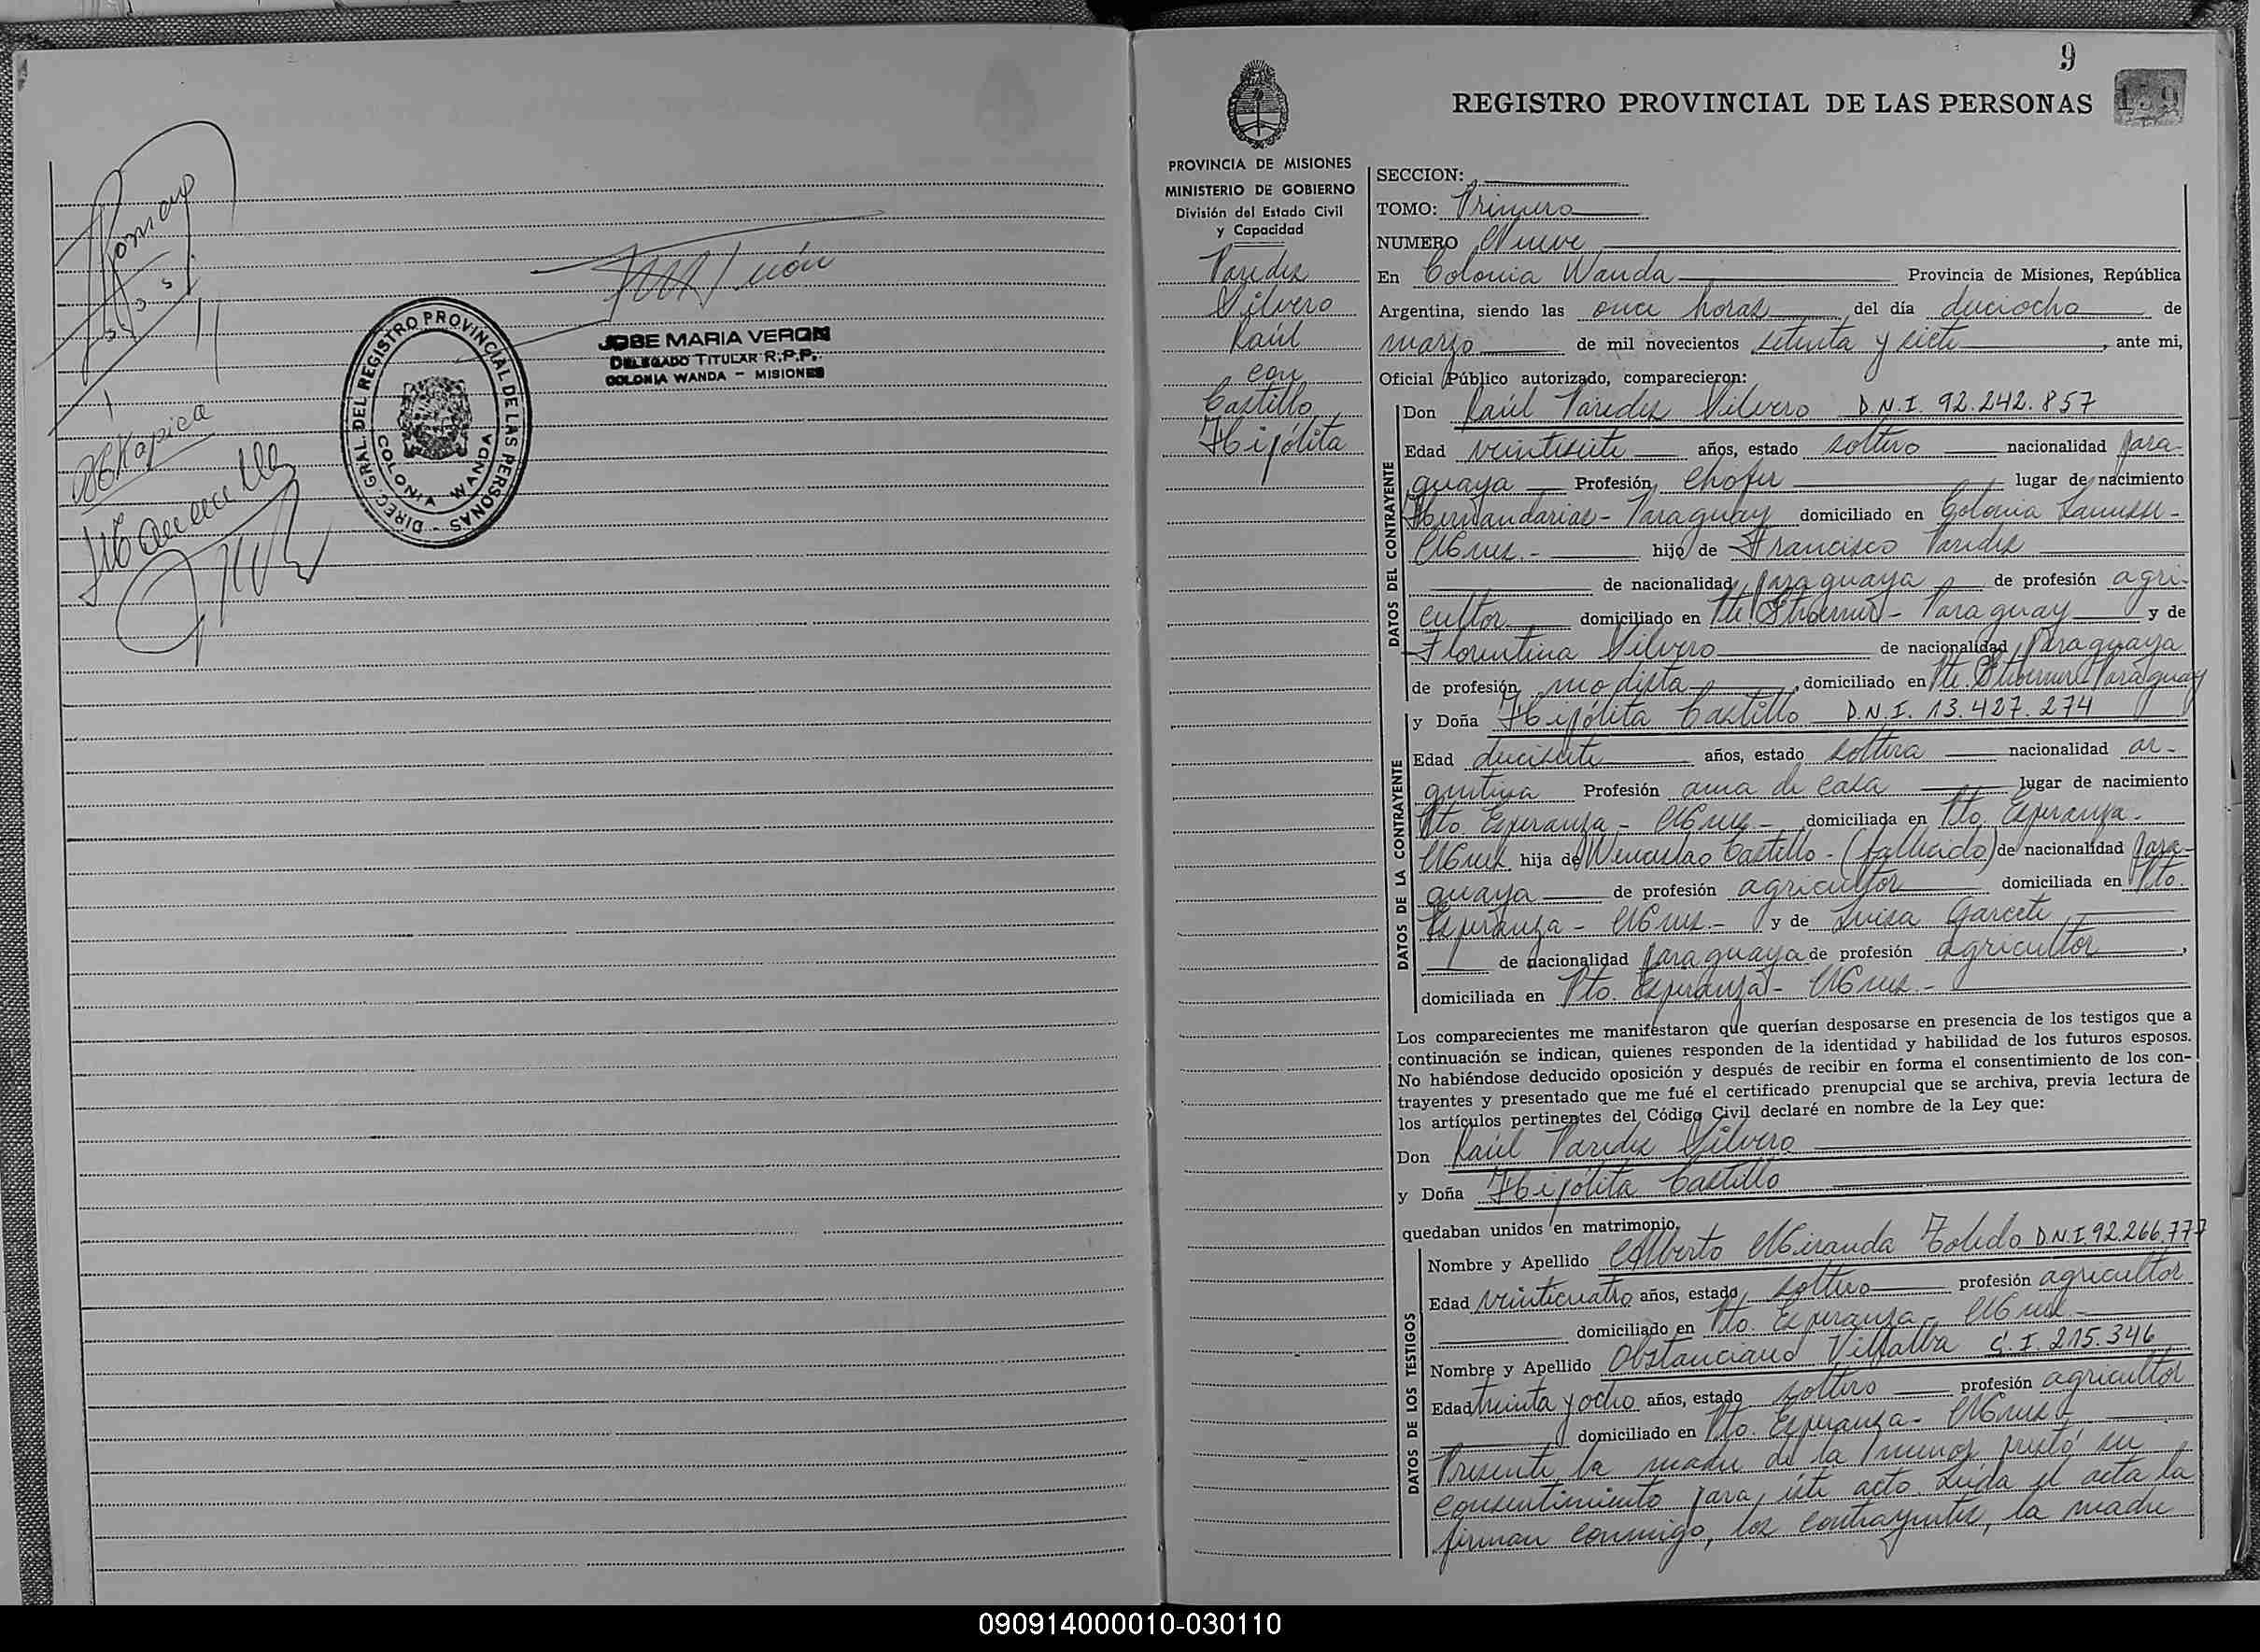 JOSE MARIA VERON
DELEGADO TITULAR R.P.P.
COLONIA WANDA - MISIONES
DIREC. GRAL. DEL REGISTRO PROVINCIAL DE LAS PERSONAS -
COLONIA WANDA
9
REGISTRO PROVINCIAL DE LAS PERSONAS
139
PROVINCIA DE MISIONES
MINISTERIO DE GOBIERNO
División del Estado Civil
y Capacidad
Paredez
Silvero
Raúl
con
Castillo
Hipólita
SECCION:
TOMO: Primero
NUMERO Nueve
En Colonia Wanda Provincia de Misiones, República
Argentina, siendo las once horas del día dieciocho de
marzo de mil novecientos setenta y siete, ante mi,
Oficial Público autorizado, comparecieron:
DATOS DEL CONTRAYENTE
Don Raúl Paredez Silvero D.N.I. 92.242.857
Edad veintisiete años, estado soltero nacionalidad para-
guaya Profesión chofer lugar de nacimiento
Hernandarias - Paraguay domiciliado en Colonia Lanusse -
Mnes. - hijo de Francisco Paredez
de nacionalidad paraguaya de profesión agri-
cultor domiciliado en Pte. Stroerner - Paraguay y de
Florentina Silvero de nacionalidad paraguaya
de profesión modista, domiciliado en Pte. Stroerner - Paraguay
DATOS DE LA CONTRAYENTE
y Doña Hipólita Castillo D.N.I. 13.427.274
Edad diecisiete años, estado soltera nacionalidad ar-
gentina Profesión ama de casa lugar de nacimiento
Pto. Esperanza - Mnes - domiciliada en Pto. Esperanza -
Mnes hija de Wenceslao Castillo - (fallecido) de nacionalidad para-
guaya de profesión agricultor domiciliada en Pto.
Esperanza - Mnes. - y de Luisa Garcete
de nacionalidad paraguaya de profesión agricultor,
domiciliada en Pto. Esperanza - Mnes. -
Los comparecientes me manifestaron que querían desposarse en presencia de los testigos que a
continuación se indican, quienes responden de la identidad y habilidad de los futuros esposos.
No habiéndose deducido oposición y después de recibir en forma el consentimiento de los con-
trayentes y presentado que me fué el certificado prenupcial que se archiva, previa lectura de
los artículos pertinentes del Código Civil declaré en nombre de la Ley que:
Don Raúl Paredez Silvero
y Doña Hipólita Castillo
quedaban unidos en matrimonio.
DATOS DE LOS TESTIGOS
Nombre y Apellido Alberto Miranda Toledo D.N.I. 92.266.777
Edad veinticuatro años, estado soltero profesión agricultor
domiciliado en Pto. Esperanza - Mnes. -
Nombre y Apellido Obstanciano Villalba C.I. 215.346
Edad treinta y ocho años, estado soltero profesión agricultor
domiciliado en Pto. Esperanza - Mnes.
Presente la madre de la menor prestó su
consentimiento para éste acto. Leída el acta la
firman conmigo, los contrayentes, la madre
090914000010-030110